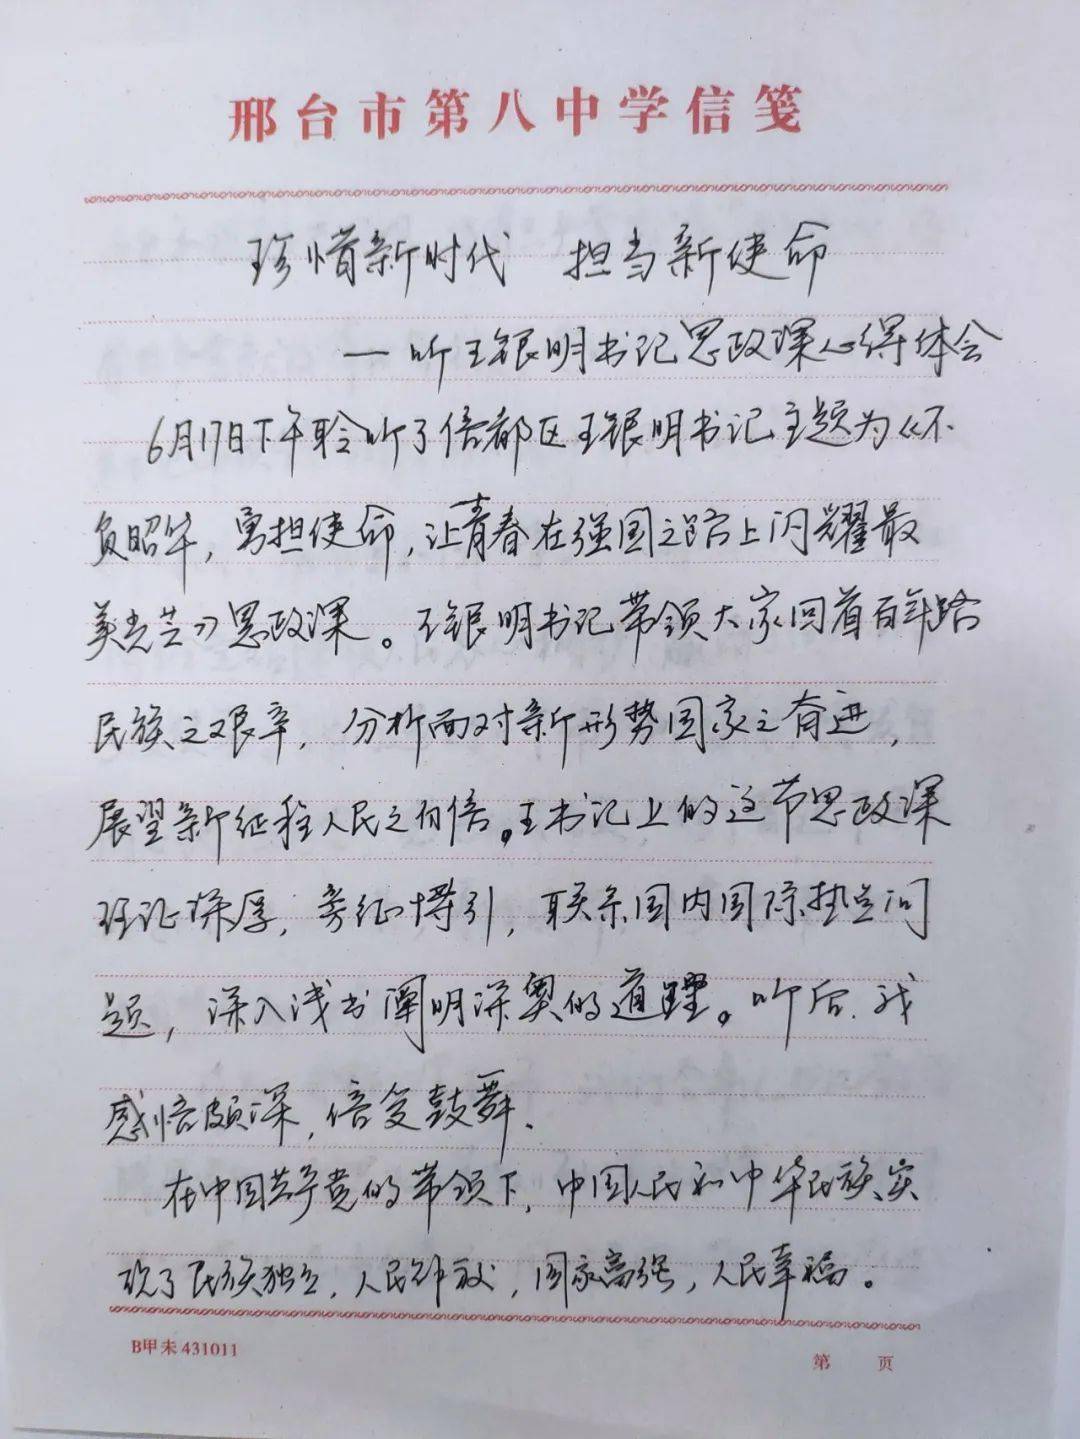 邢台市第八中学信笺
珍惜新时代 担当新使命
—听王银明书记思政课心得体会
6月17日下午聆听了信都区王银明书记主题为《不
负昭华,勇担使命,让青春在强国之路上闪耀最
美光芒》思政课。王银明书记带领大家回首百年路
民族之艰辛,分析面对新形势国家之奋进,
展望新征程人民之自信。王书记上的这节思政课
理论深厚,旁征博引,联系国内国际热点问
题,深入浅出阐明深奥的道理。听后,我
感悟颇深,倍受鼓舞.
在中国共产党的带领下,中国人民和中华民族实
现了民族独立,人民解放,国家富强,人民幸福。
B甲未 431011
第 页